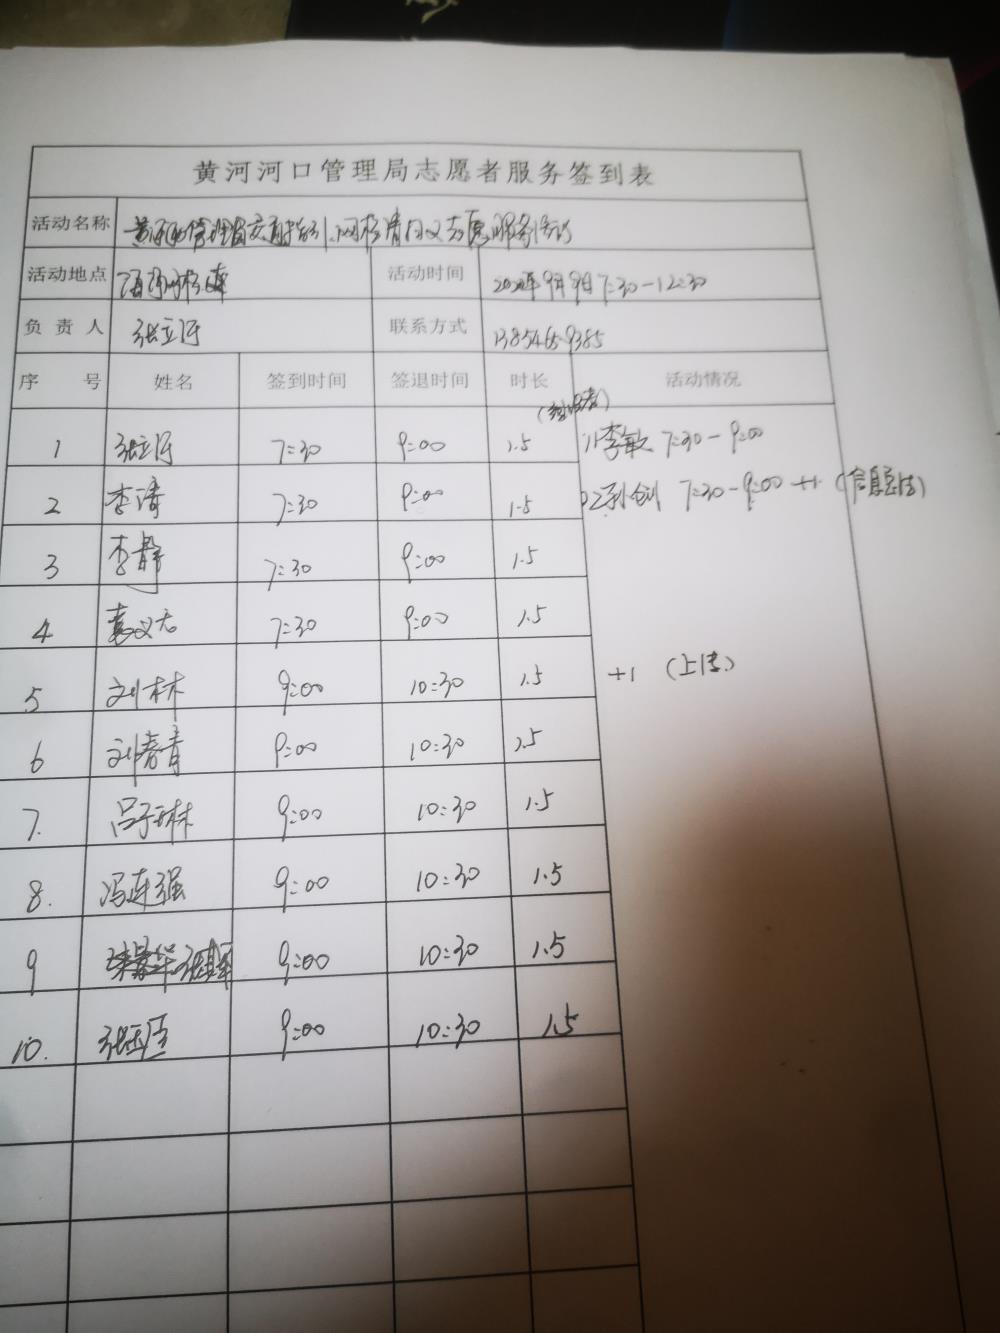 黄河河口管理局志愿者服务签到表
活动名称 黄河河口管理局交通指引、网格清扫义务志愿服务活动
活动地点
活动时间 9月9日 7:30-12:30
负责人 张立河 联系方式
序号 姓名 签到时间 签退时间 时长 活动情况
1 张立河 7:30 9:00 1.5 11李敏 7:30-9:00
2 李涛 7:30 9:00 1.5 7:30-9:00 +1
3 李静 7:30 9:00 1.5
4 袁义 7:30 9:00 1.5
5 刘林林 9:00 10:30 1.5 +1 (上传)
6 刘春青 9:00 10:30 1.5
7. 吕子琳 9:00 10:30 1.5
8. 冯连强 9:00 10:30 1.5
9 9:00 10:30 1.5
10. 9:00 10:30 1.5